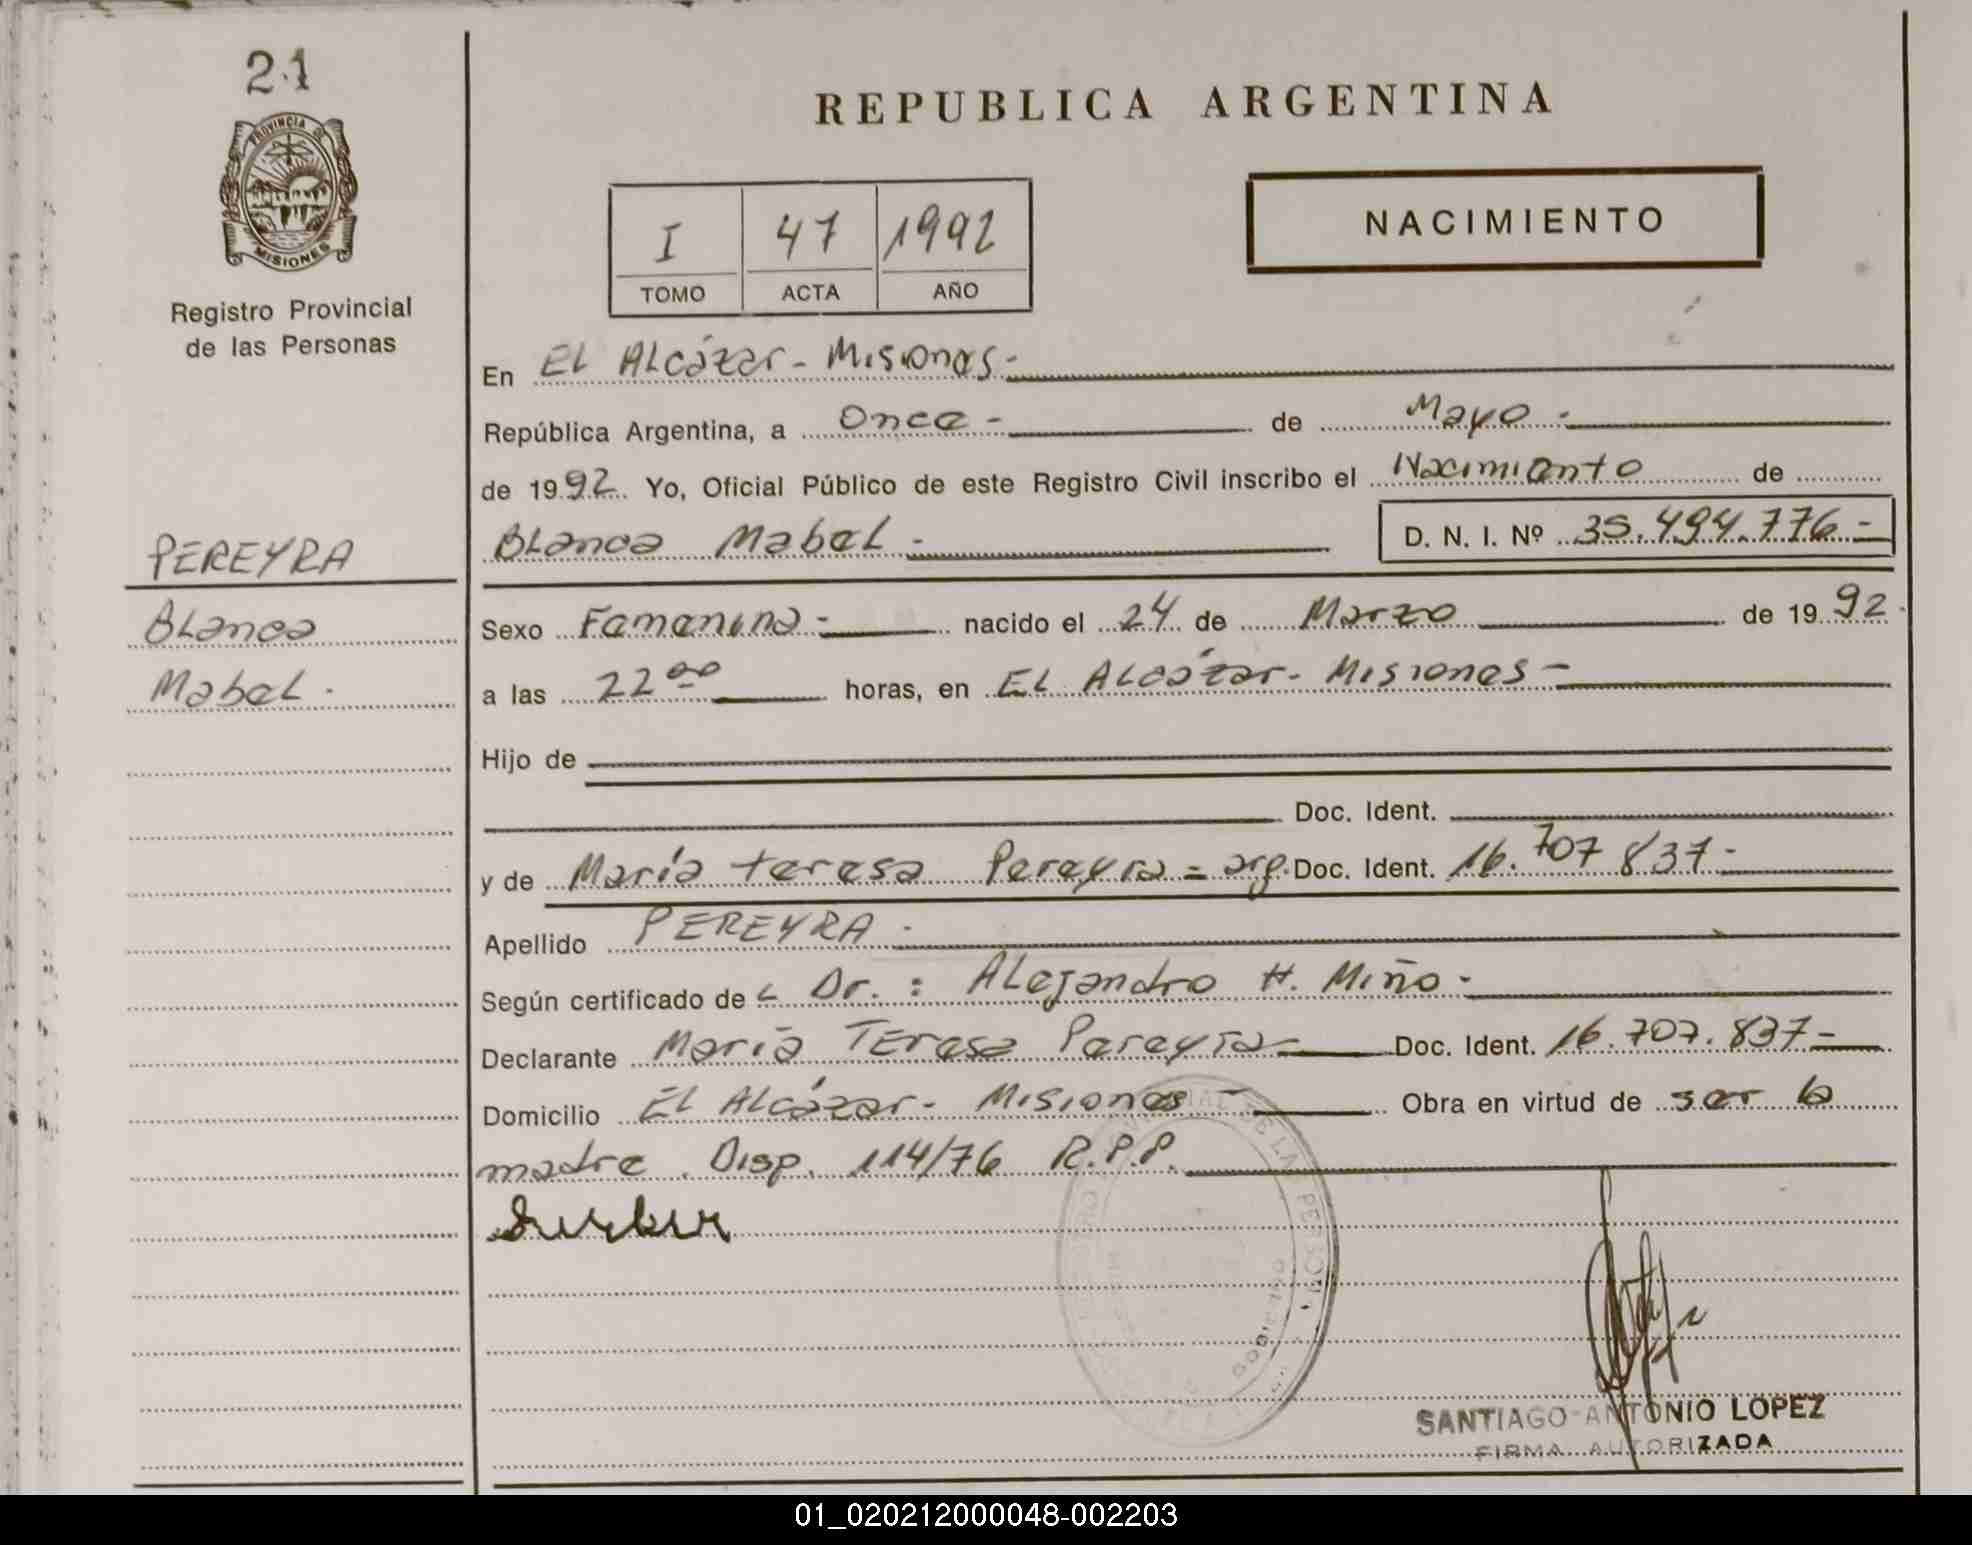 21
REPUBLICA ARGENTINA
PROVINCIA DE
MISIONES
Registro Provincial
de las Personas
I 47 1992
TOMO ACTA AÑO
NACIMIENTO
En EL ALcázar - Misiones -
República Argentina, a Once - de Mayo -
de 1992 Yo, Oficial Público de este Registro Civil inscribo el Nacimiento de
Blanca Mabel - D. N. I. Nº 35.494.776.-
PEREYRA
Blanca
Mabel.
Sexo Femenina - nacido el 24 de Marzo de 1992
a las 22 00 horas, en EL ALcázar - Misiones -
Hijo de
Doc. Ident.
y de María teresa Pereyra = arg. Doc. Ident. 16.707 837 -
Apellido PEREYRA -
Según certificado de L Dr. : ALejandro H. Miño -
Declarante María TEresa Pereyra Doc. Ident. 16.707.837 -
Domicilio EL ALcázar - Misiones - Obra en virtud de ser la
madre . Disp. 114/76 R.P.P.
SANTIAGO ANTONIO LOPEZ
FIRMA AUTORIZADA
01_020212000048-002203